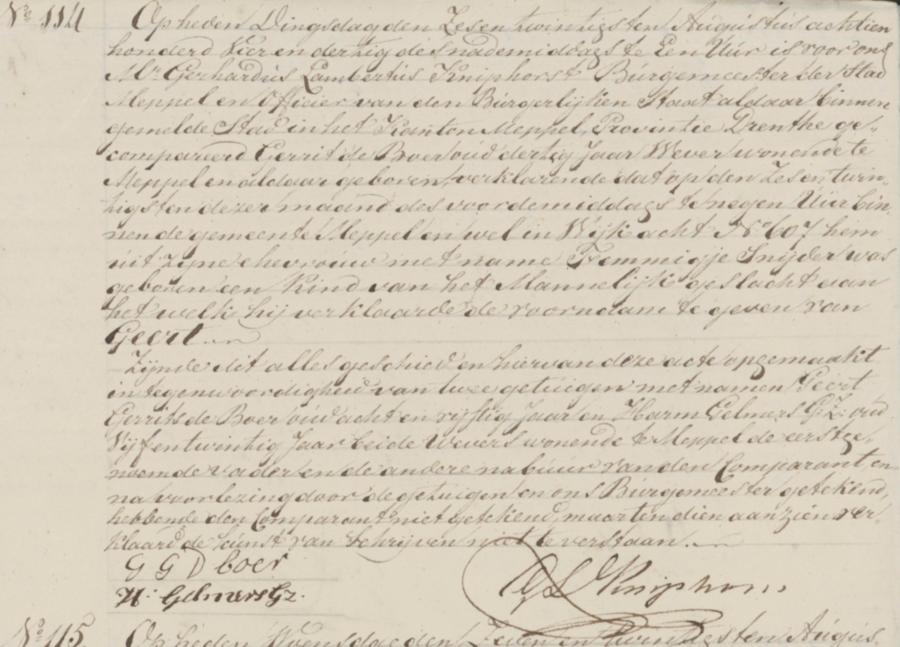 No 114 Op heden Dingsdag den Zesentwintigsten Augustus achttien
honderd Vier en dertig des nademiddags te Een Uur is voor ons
Mr Gerhardus Lambertus Kniphorst Burgemeester der Stad
Meppel en Officier van den Burgerlijken Staat aldaar binnen
gemelde Stad in het Kanton Meppel, Provintie Drenthe ge-
compareerd Gerrit de Boer oud dertig Jaar Wever wonende te
Meppel en aldaar geboren, verklarende dat op den Zesentwin-
tigsten dezer maand des voordemiddags te negen Uur bin-
nen de gemeente Meppel en wel in Wijk acht No 607 hem
uit zijne ehevrouw met name Femmigje Snijder was
geboren een Kind van het Mannelijk geslacht aan
het welk hij verklaarde de voornaam te geven van
Geert
Zijnde dit alles geschied en hiervan deze acte opgemaakt
in tegenwoordigheid van twee getuigen met namen Geert
Gerrits de Boer oud acht en vijftig Jaar en Harm Gelmers GZ: oud
Vijfentwintig Jaar beide Wevers wonende te Meppel de eerstge-
noemde vader en de andere nabuur van den Comparant en
na voorlezing door de getuigen en ons Burgemeester getekend,
hebbende den Comparant niet getekend, maar ten dien aanzien ver-
klaard de kunst van schrijven niet te verstaan
G G D boer
H: Gelmers Gz. G L Kniphorst
No 115 Op heden Woensdag den Zeven en twintigsten Augus-